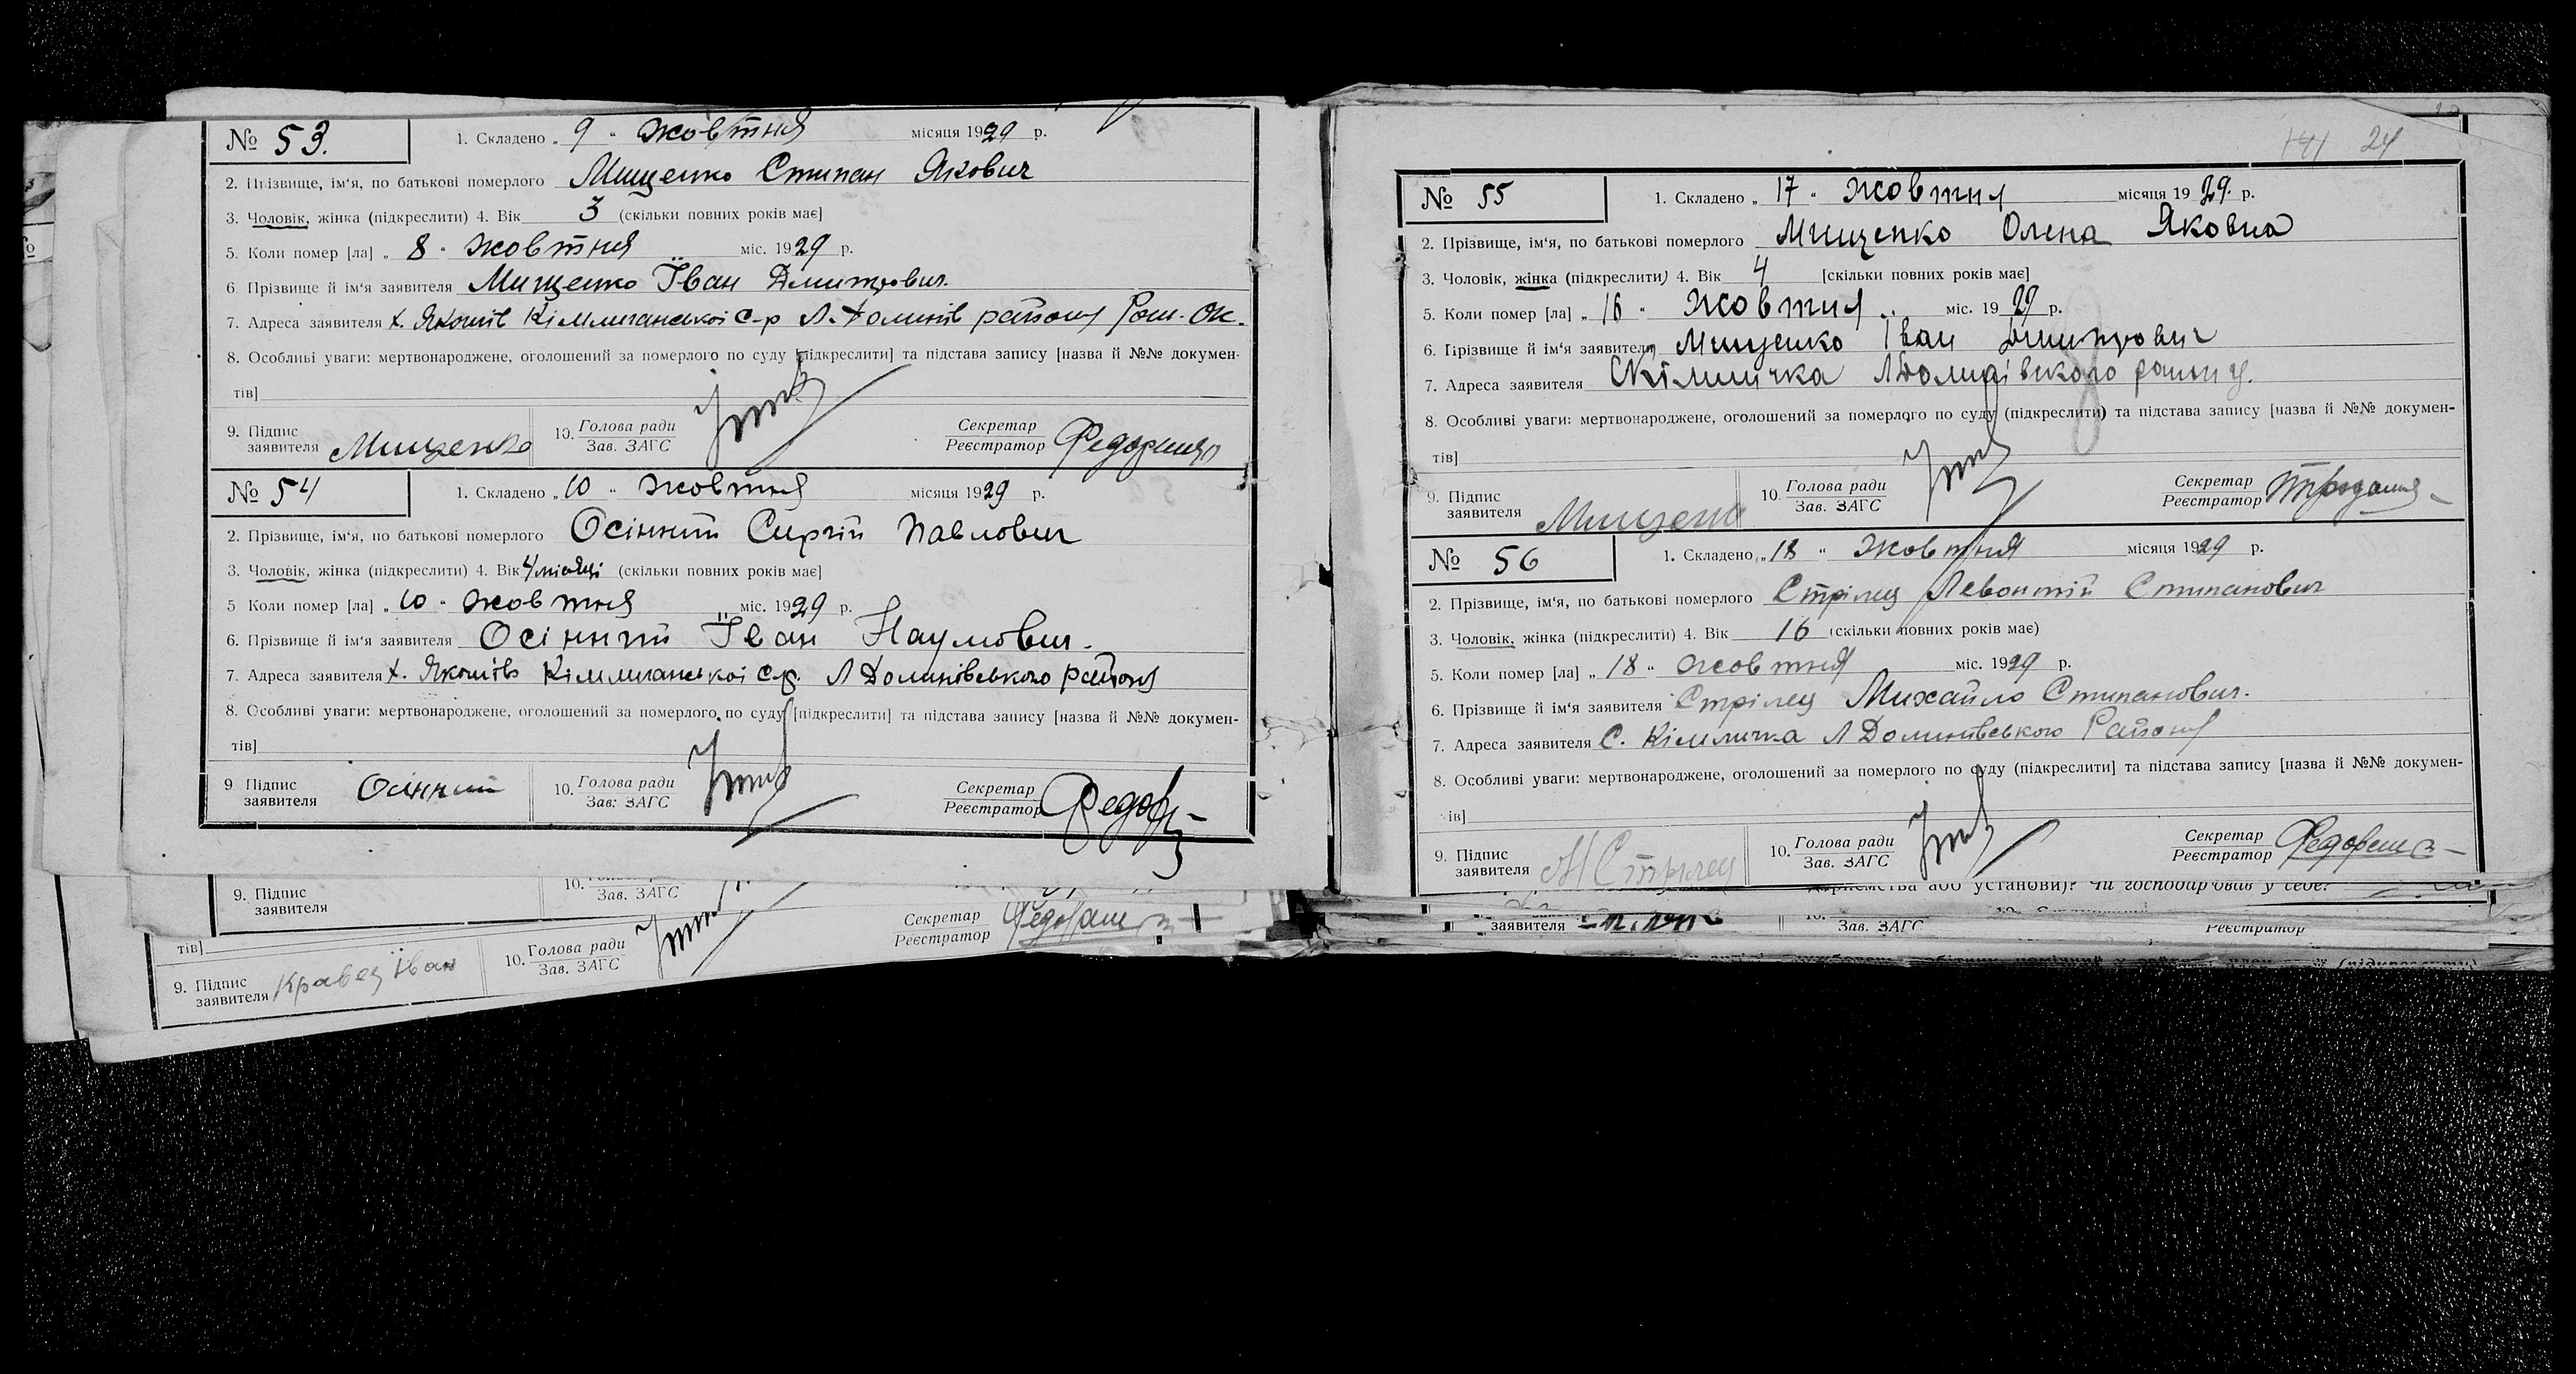 № 53. 1. Складено „ 9 " Жовтня місяця 1929 р.
2. Прізвище, ім'я, по батькові померлого Мищенко Стипан Якович
3. Чоловік, жінка (підкреслити) 4. Вік 3 (скільки повних років має]
5. Коли помер [ла] „ 8 " жовтня міс. 1929 р.
6 Прізвище й ім'я заявителя Мищенко Іван Дмитрович.
7. Адреса заявителя х. Л. Долинів району Ром. Ок.
8. Особливі уваги: мертвонароджене, оголошений за померлого по суду [підкреслити] та підстава запису [назва й №№ докумен-
тів]
9. Підпис заявителя Мищенко 10. Голова ради Зав. ЗАГС Секретар Реєстратор
№ 54 1. Складено „ 10 " жовтня місяця 1929 р.
2. Прізвище, ім'я, по батькові померлого Осінний Сиргій Павлович
3. Чоловік, жінка (підкреслити) 4. Вік 4 місяці (скільки повних років має]
5 Коли помер [ла] „ 10 " жовтня міс. 1929 р.
6. Прізвище й ім'я заявителя Осінний Іван Наумович.
7. Адреса заявителя х. С.р. Л Долинівського району
8. Особливі уваги: мертвонароджене, оголошений за померлого по суду [підкреслити] та підстава запису [назва й №№ докумен-
тів]
9 Підпис заявителя Осінний 10. Голова ради Зав: ЗАГС Секретар Реєстратор
9. Підпис заявителя 10. Зав. ЗАГС
тів]
9. Підпис заявителя Кравец Іван 10. Голова ради Зав. ЗАГС Секретар Реєстратор
141 24
№ 55 1. Складено „ 17 " Жовтня місяця 1929. р.
2. Прізвище, ім'я, по батькові померлого Мищенко Олена Яковна
3. Чоловік, жінка (підкреслити) 4. Вік 4 [скільки повних років має]
5. Коли помер [ла] „ 16 " Жовтня міс. 1929 р.
6. Прізвище й ім'я заявителя Мищенко Іван Дмитрович
7. Адреса заявителя С Кімличка району.
8. Особливі уваги: мертвонароджене, оголошений за померлого по суду (підкреслити) та підстава запису [назва й №№ докумен-
тів]
9. Підпис заявителя Мищенко 10. Голова ради Зав. ЗАГС Секретар Реєстратор
№ 56 1. Складено „ 18 " Жовтня місяця 1929 р.
2. Прізвище, ім'я, по батькові померлого Стрілец Левонтій Стипанович
3. Чоловік, жінка (підкреслити) 4. Вік 16 (скільки повних років має)
5. Коли помер [ла] „ 18 " жовтня міс. 1929 р.
6. Прізвище й ім'я заявителя Стрілец Михайло Стипанович.
7. Адреса заявителя С. Кімличка Л Долинівського Району
8. Особливі уваги: мертвонароджене, оголошений за померлого по суду (підкреслити] та підстава запису [назва й №№ докумен-
ів]
9. Підпис заявителя М Стрілец 10. Голова ради Зав. ЗАГС Секретар Реєстратор
або установи)? Чи господарював у себе?
заявителя Зав. ЗАГС Реєстратор